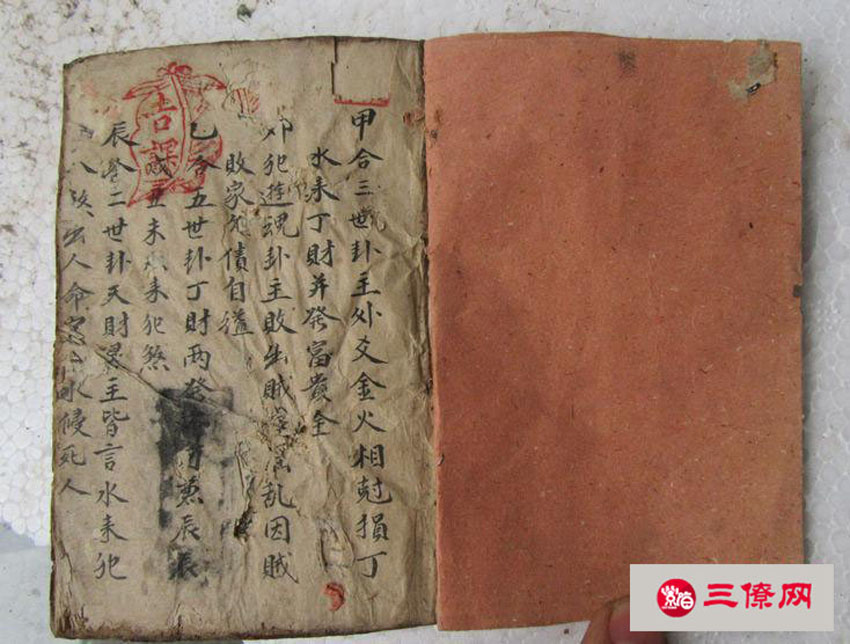 甲合三世卦主外爻金火相尅損丁
水来丁財并發富贵全
卯犯遊魂卦主敗出賊淫乱因賊
敗家欠債自縊
乙合五世卦丁財两發兼辰辰
丑未水来犯煞
辰合二世卦天財主皆言水来犯
出人命水侵死人
吉課
三僚网